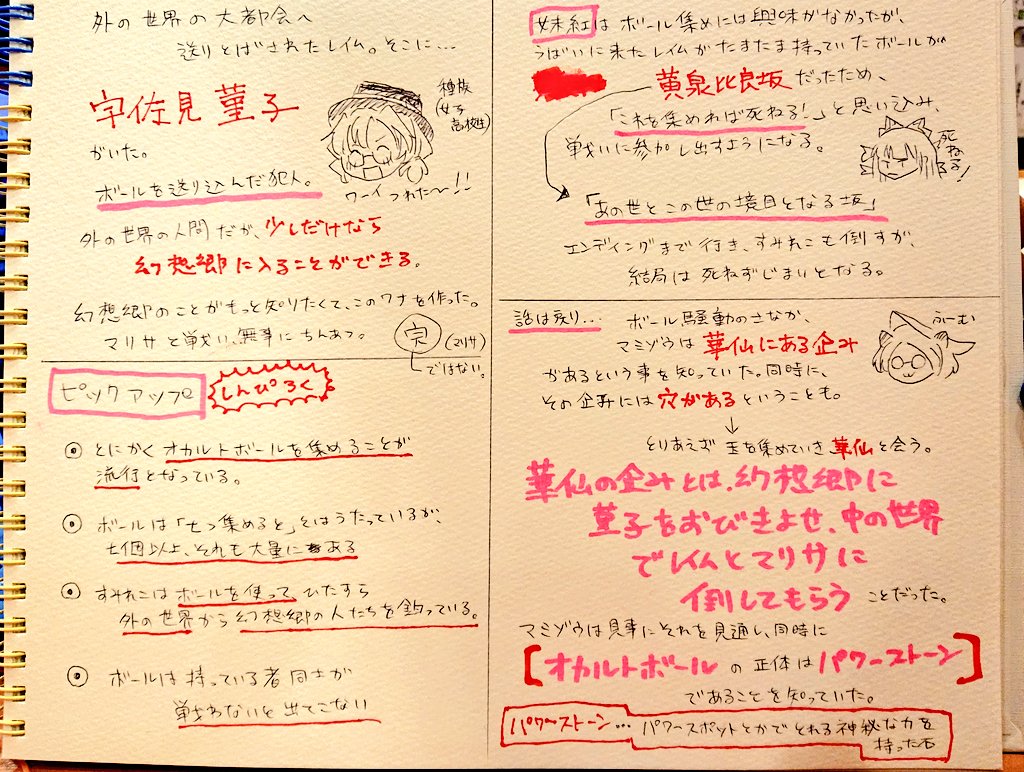 外の世界の大都会へ
送りとばされたレイム。そこに…
宇佐見菫子
種族
(女子
高校生)
がいた。
ワーイつれた〜!!
ボールを送り込んだ犯人。
外の世界の人間だが、少しだけなら
幻想郷に入ることができる。
幻想郷のことがもっと知りたくて、このワナを作った。
マリサと戦い、無事にちんあつ。
完(マリサ)
ではない。
ピックアップ しんぴろく
とにかくオカルトボールを集めることが
流行となっている。
ボールは「七つ集めると」とはうたっているが、
七個以上、それも大量にある
すみれこはボールを使って、ひたすら
外の世界から幻想郷の人たちを釣っている。
ボールは持っている者同士が
戦わないと出てこない
妹紅はボール集めには興味がなかったが、
うばいに来たレイムがたまたま持っていたボールが
黄泉比良坂だったため、
「これを集めれば死ねる!」と思い込み、
戦いに参加し出すようになる。
死ねる!
「あの世とこの世の境目となる坂」
エンディングまで行き、すみれこも倒すが、
結局は死ねずじまいとなる。
話は戻り… ボール騒動のさなか、
マミゾウは華仙にある企み
があるという事を知っていた。同時に、
その企みには穴があるということも。
ふーむ
↓
とりあえず玉を集めていき華仙と会う。
華仙の企みとは、幻想郷に
菫子をおびきよせ、中の世界
でレイムとマリサに
倒してもらうことだった。
マミゾウは見事にそれを見通し、同時に
[オカルトボールの正体はパワーストーン]
であることを知っていた。
パワーストーン… パワースポットとかでとれる神秘な力を
持った石